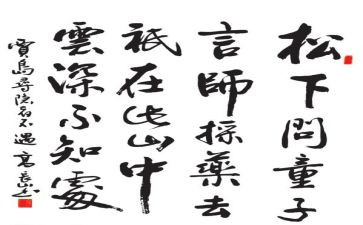 松下問童子
言師採藥去
祇在此山中
雲深不知處
賈島尋隱者不遇 高長山書